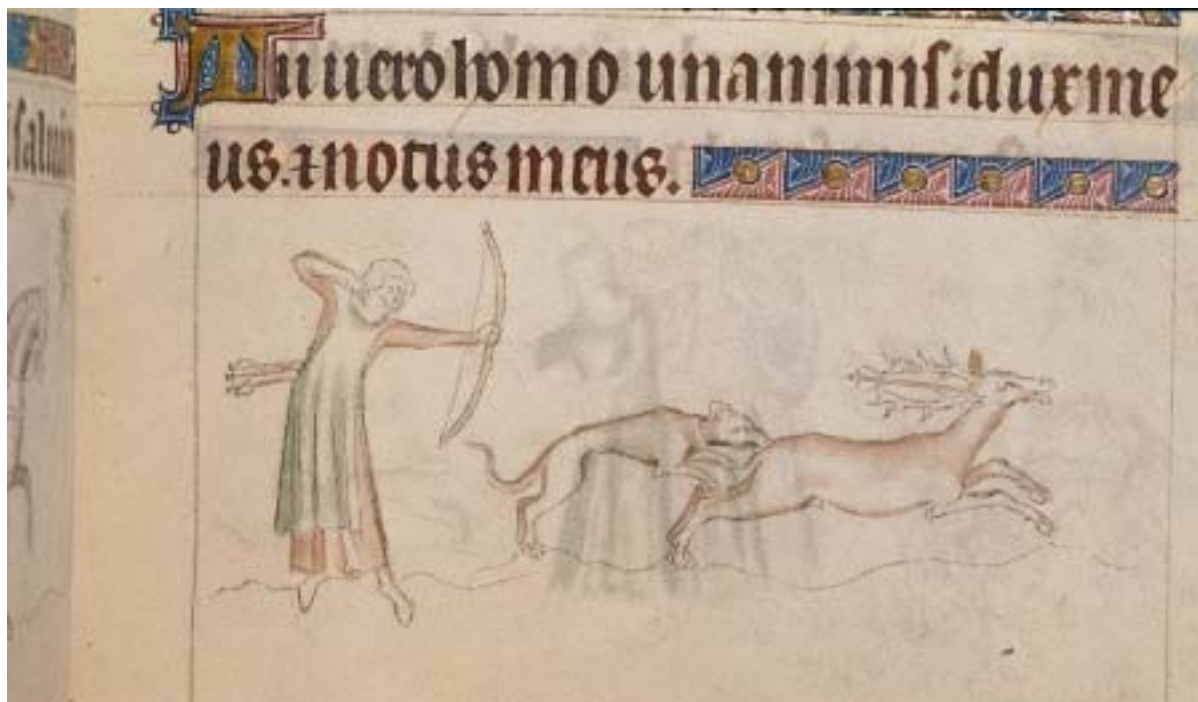 Tu uero homo unanimis: dux me
us. ⁊ notus meus.